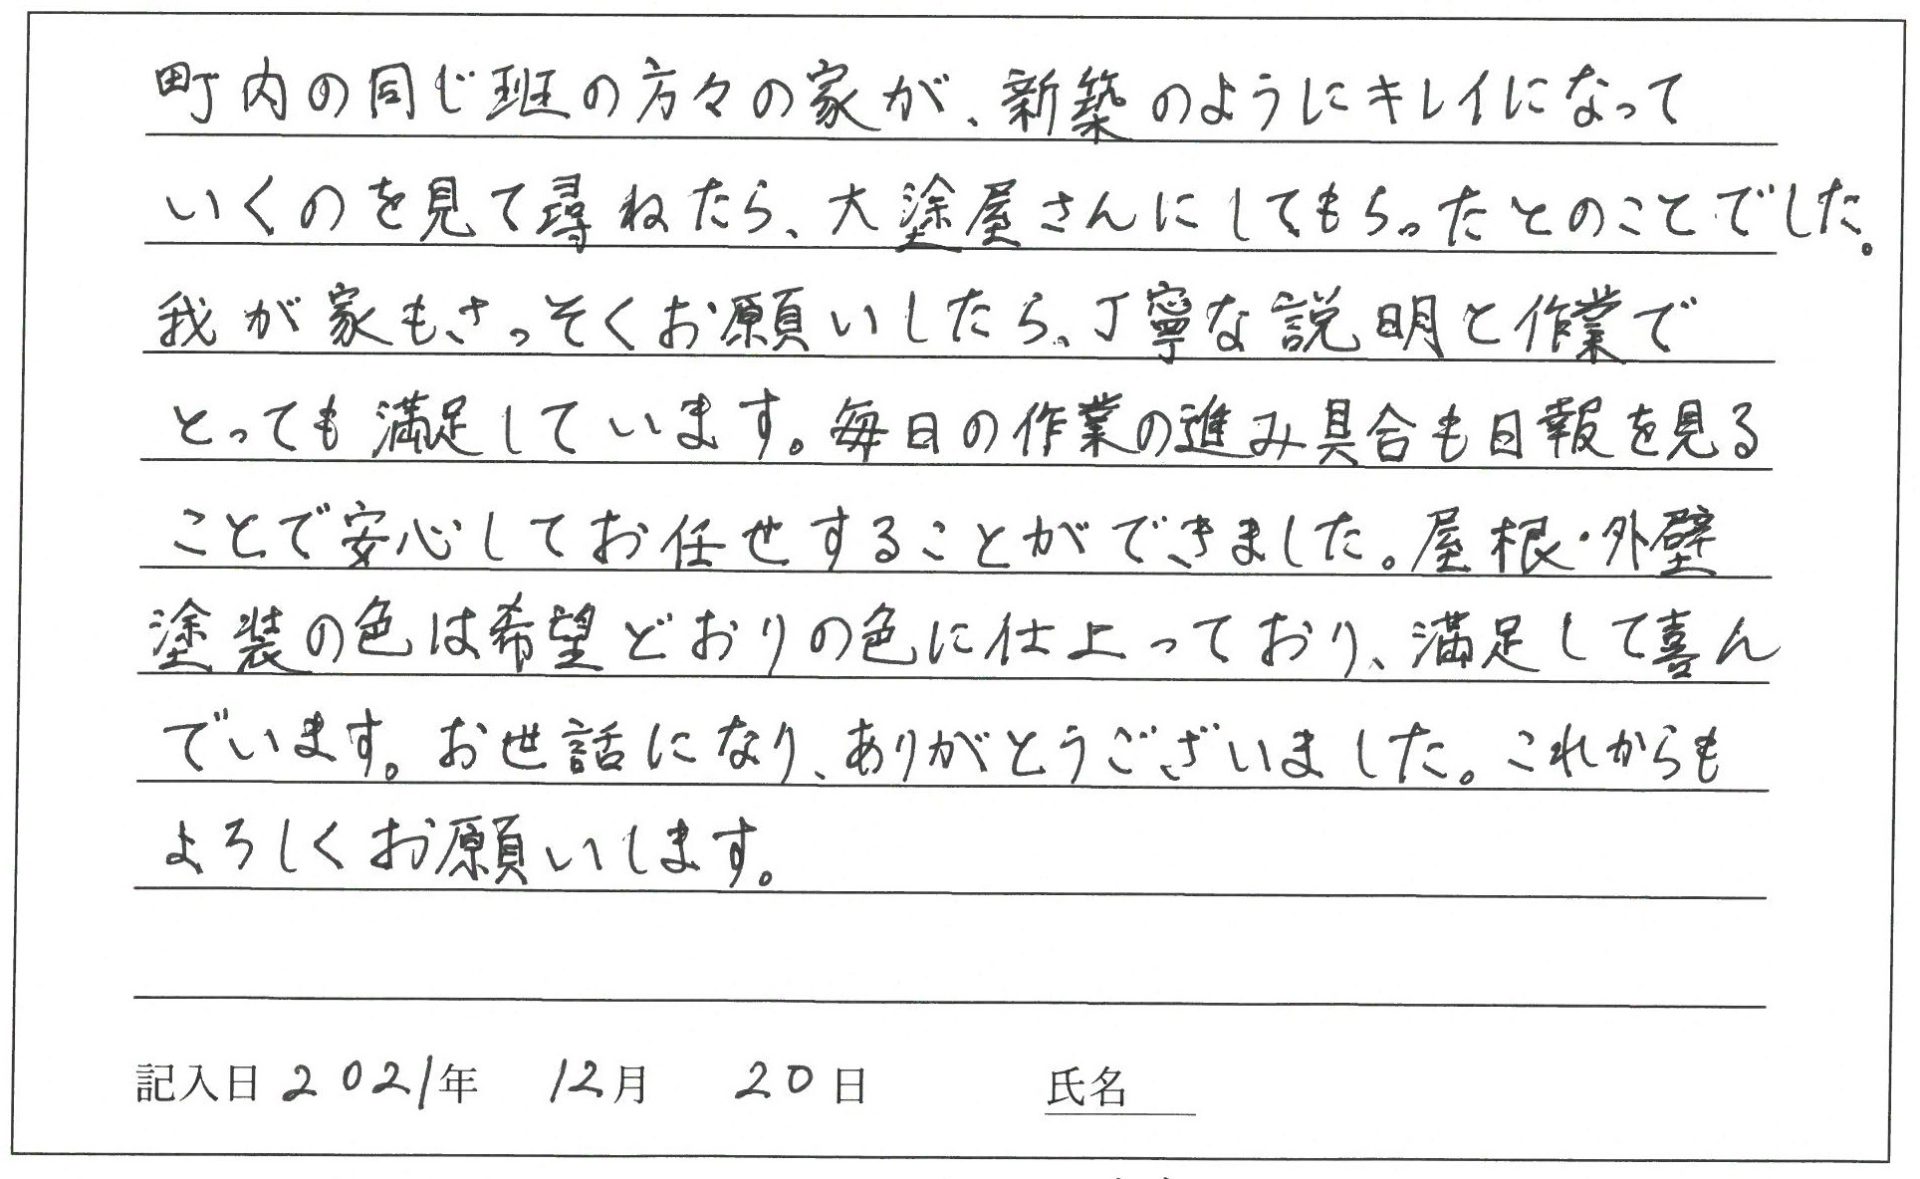 町内の同じ班の方々の家が、新築のようにキレイになって
いくのを見て尋ねたら、大塗屋さんにしてもらったとのことでした。
我が家もさっそくお願いしたら、丁寧な説明と作業で
とっても満足しています。毎日の作業の進み具合も日報を見る
ことで安心してお任せすることができました。屋根・外壁
塗装の色は希望どおりの色に仕上っており、満足して喜ん
でいます。お世話になり、ありがとうございました。これからも
よろしくお願いします。
記入日 2021年 12月 20日 氏名